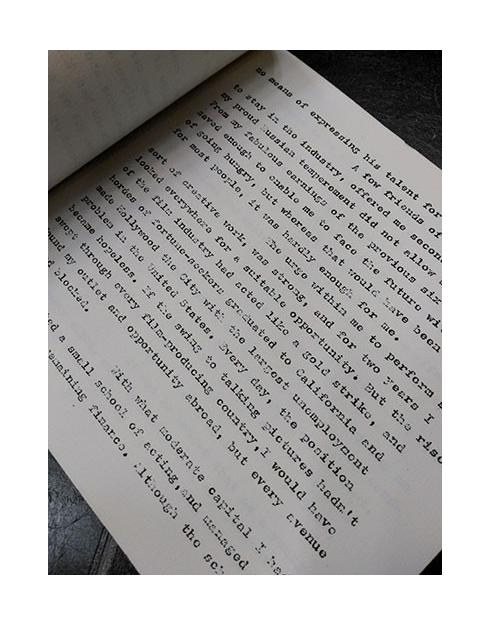 no means of expressing his talent for
A few friends of
to stay in the industry, offered me secon
my proud Russian temperement did not allow
From my fabulous earnings of the previous six
saved enough to enable me to face the future wit
of going hungry, but whereas that would have been
for most people, it was hardly enough for me.
The urge within me to perform
sort of creative work, was strong, and for two years I
looked everywhere for a suitable opportunity. But the rise
of the film industry had acted like a gold strike, and
hordes of fortune-seekers graduated to California and
made Hollywood the City with the largest unemployment
problem in the United States. Every day, the position
became hopeless. If the swing to talking pictures hadn't
swept through every film-producing country, I would have
found my outlet and opportunity abroad, but every avenue
blocked.
With what moderate capital I ha
a small school of acting, and managed
remaining finance. Although the sch